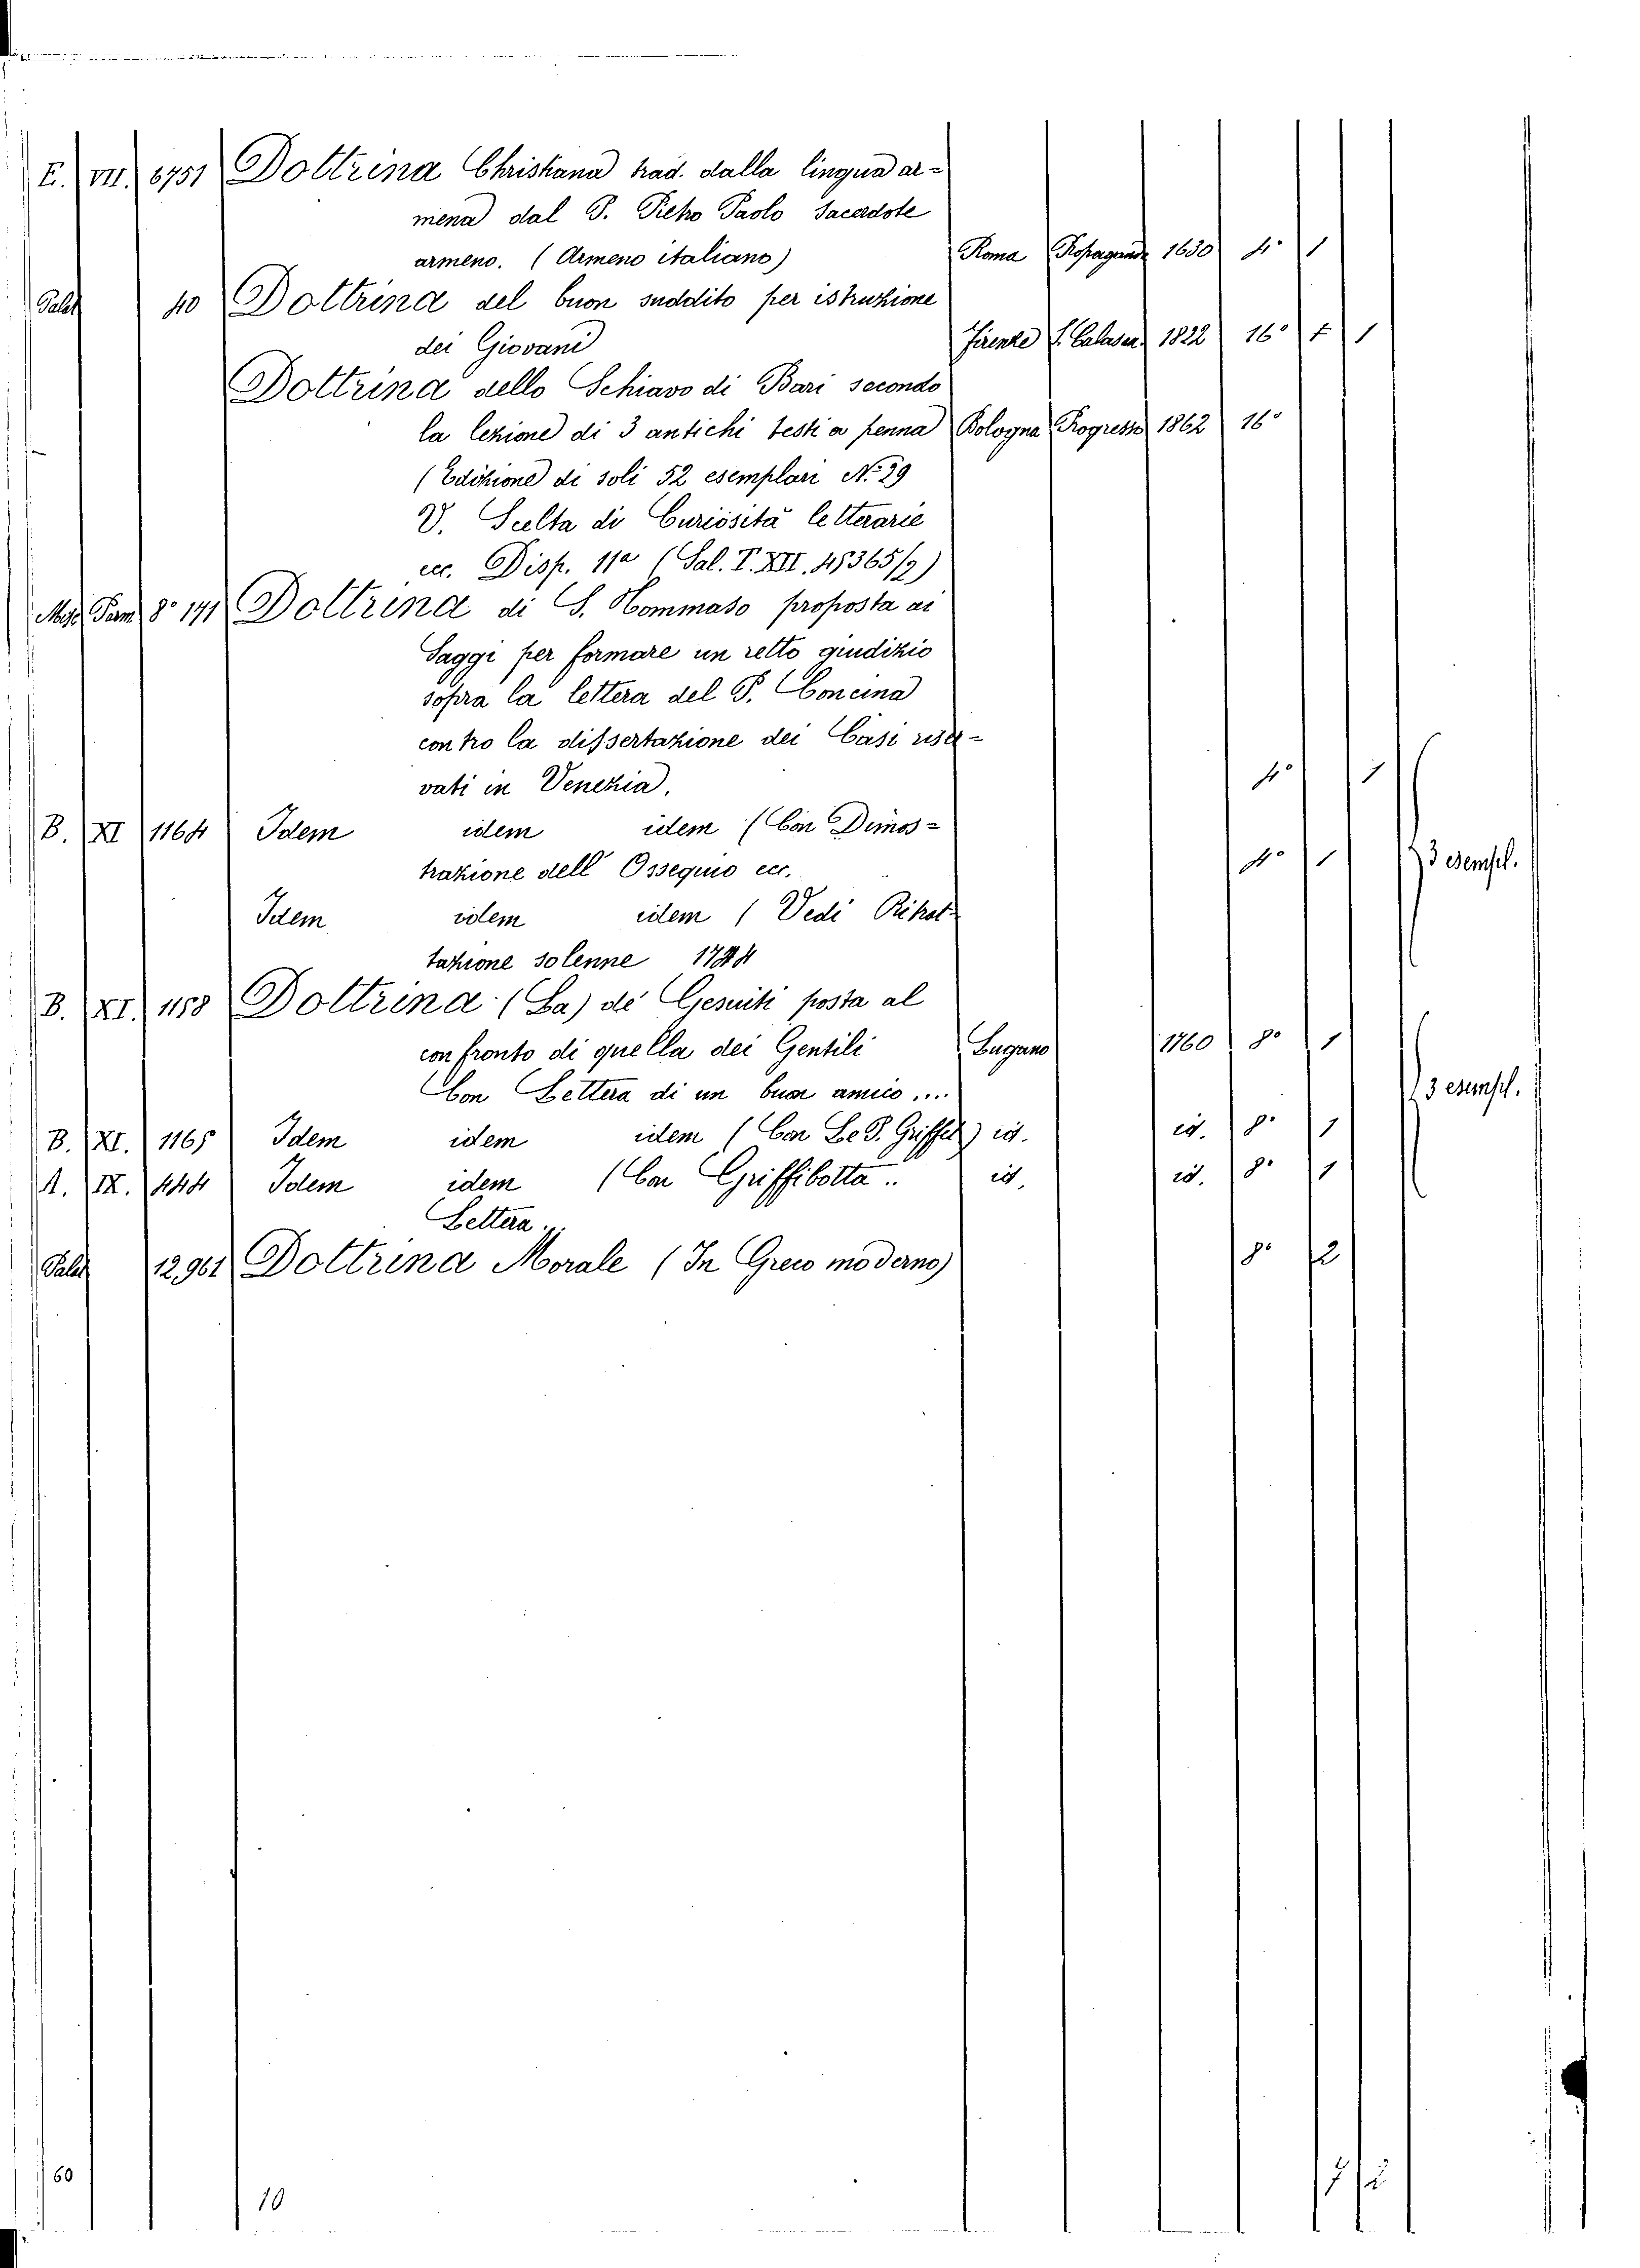 E. VII. 6751 Dottrina Christiana trad. dalla lingua ar-
mena dal P. Pietro Paolo Sacerdote
armeno. (Armeno italiano) Roma Propaganda 1630 4° 1
Palat 40 Dottrina del buon suddito per istruzione
dei Giovani Firenze Calasan. 1822 16° 1
Dottrina dello Schiavo di Bari secondo
la lezione di 3 antichi testi a penna Bologna Progresso 1862 16°
(Edizione di soli 52 esemplari N. 29
V. Scelta di Curiosità letterarie
ecc. Disp. 11a (Sal. T. XII.
8° 141 Dottrina di S. Tommaso proposta ai
Saggi per formare un retto giudizio
sopra la lettera del P. Concina
contro la dissertazione dei Casi riser-
vati in Venezia. 4° 1
B. XI 1164 Idem idem idem (Con Dimos-
trazione dell' Ossequio ecc. 4° 1 3 esempl.
Idem idem idem (Vedi Ritrat-
tazione solenne 1744
B. XI. 1158 Dottrina (La) de' Gesuiti posta al
confronto di quella dei Gentili Lugano 1760 8° 1
Con Lettera di un buon amico.... 3 esempl.
B. XI. 1165 Idem idem idem (Con Le P. Griffet) id. id. 8° 1
A. IX. 444 Idem idem (Con Griffibotta.. id. id. 8° 1
Lettera...
Palat 12961 Dottrina Morale (In Greco moderno) 8° 2
60
10
7 2